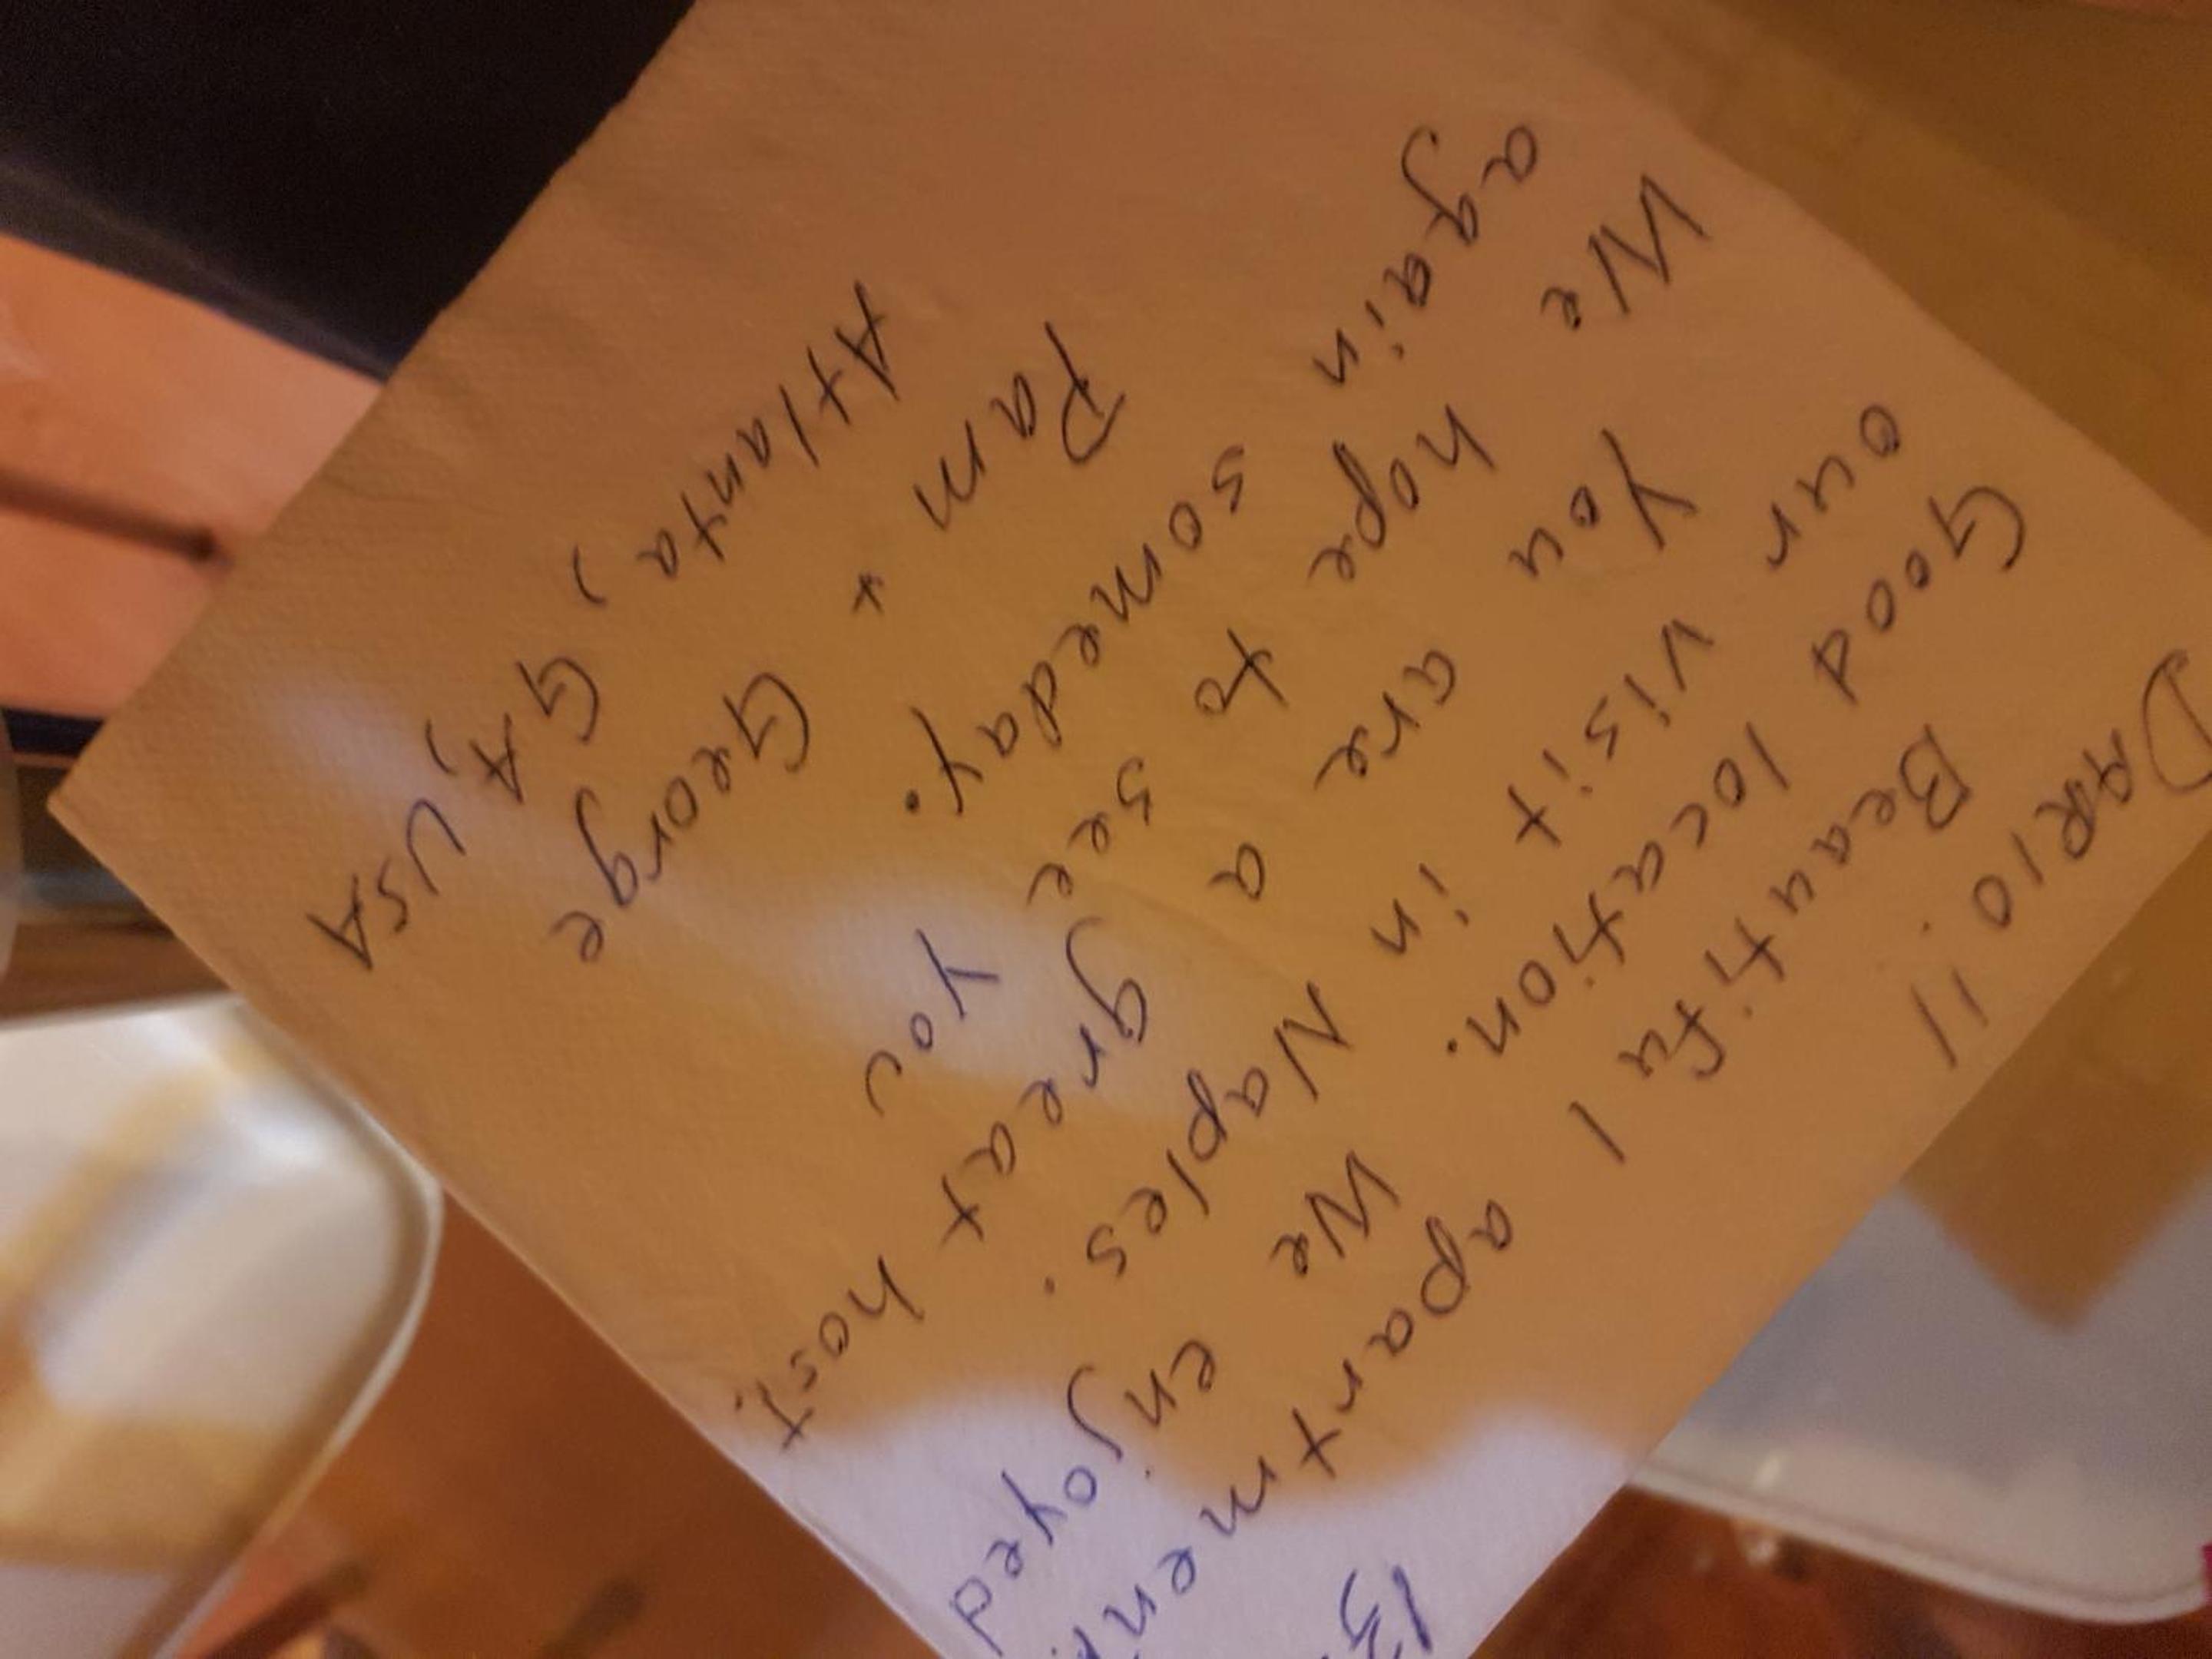 DARIO
Beautiful apartment
Good location. We enjoyed
our visit in Naples.
You are a great host.
We hope to see you
again someday.
Pam + George
Atlanta, GA, USA